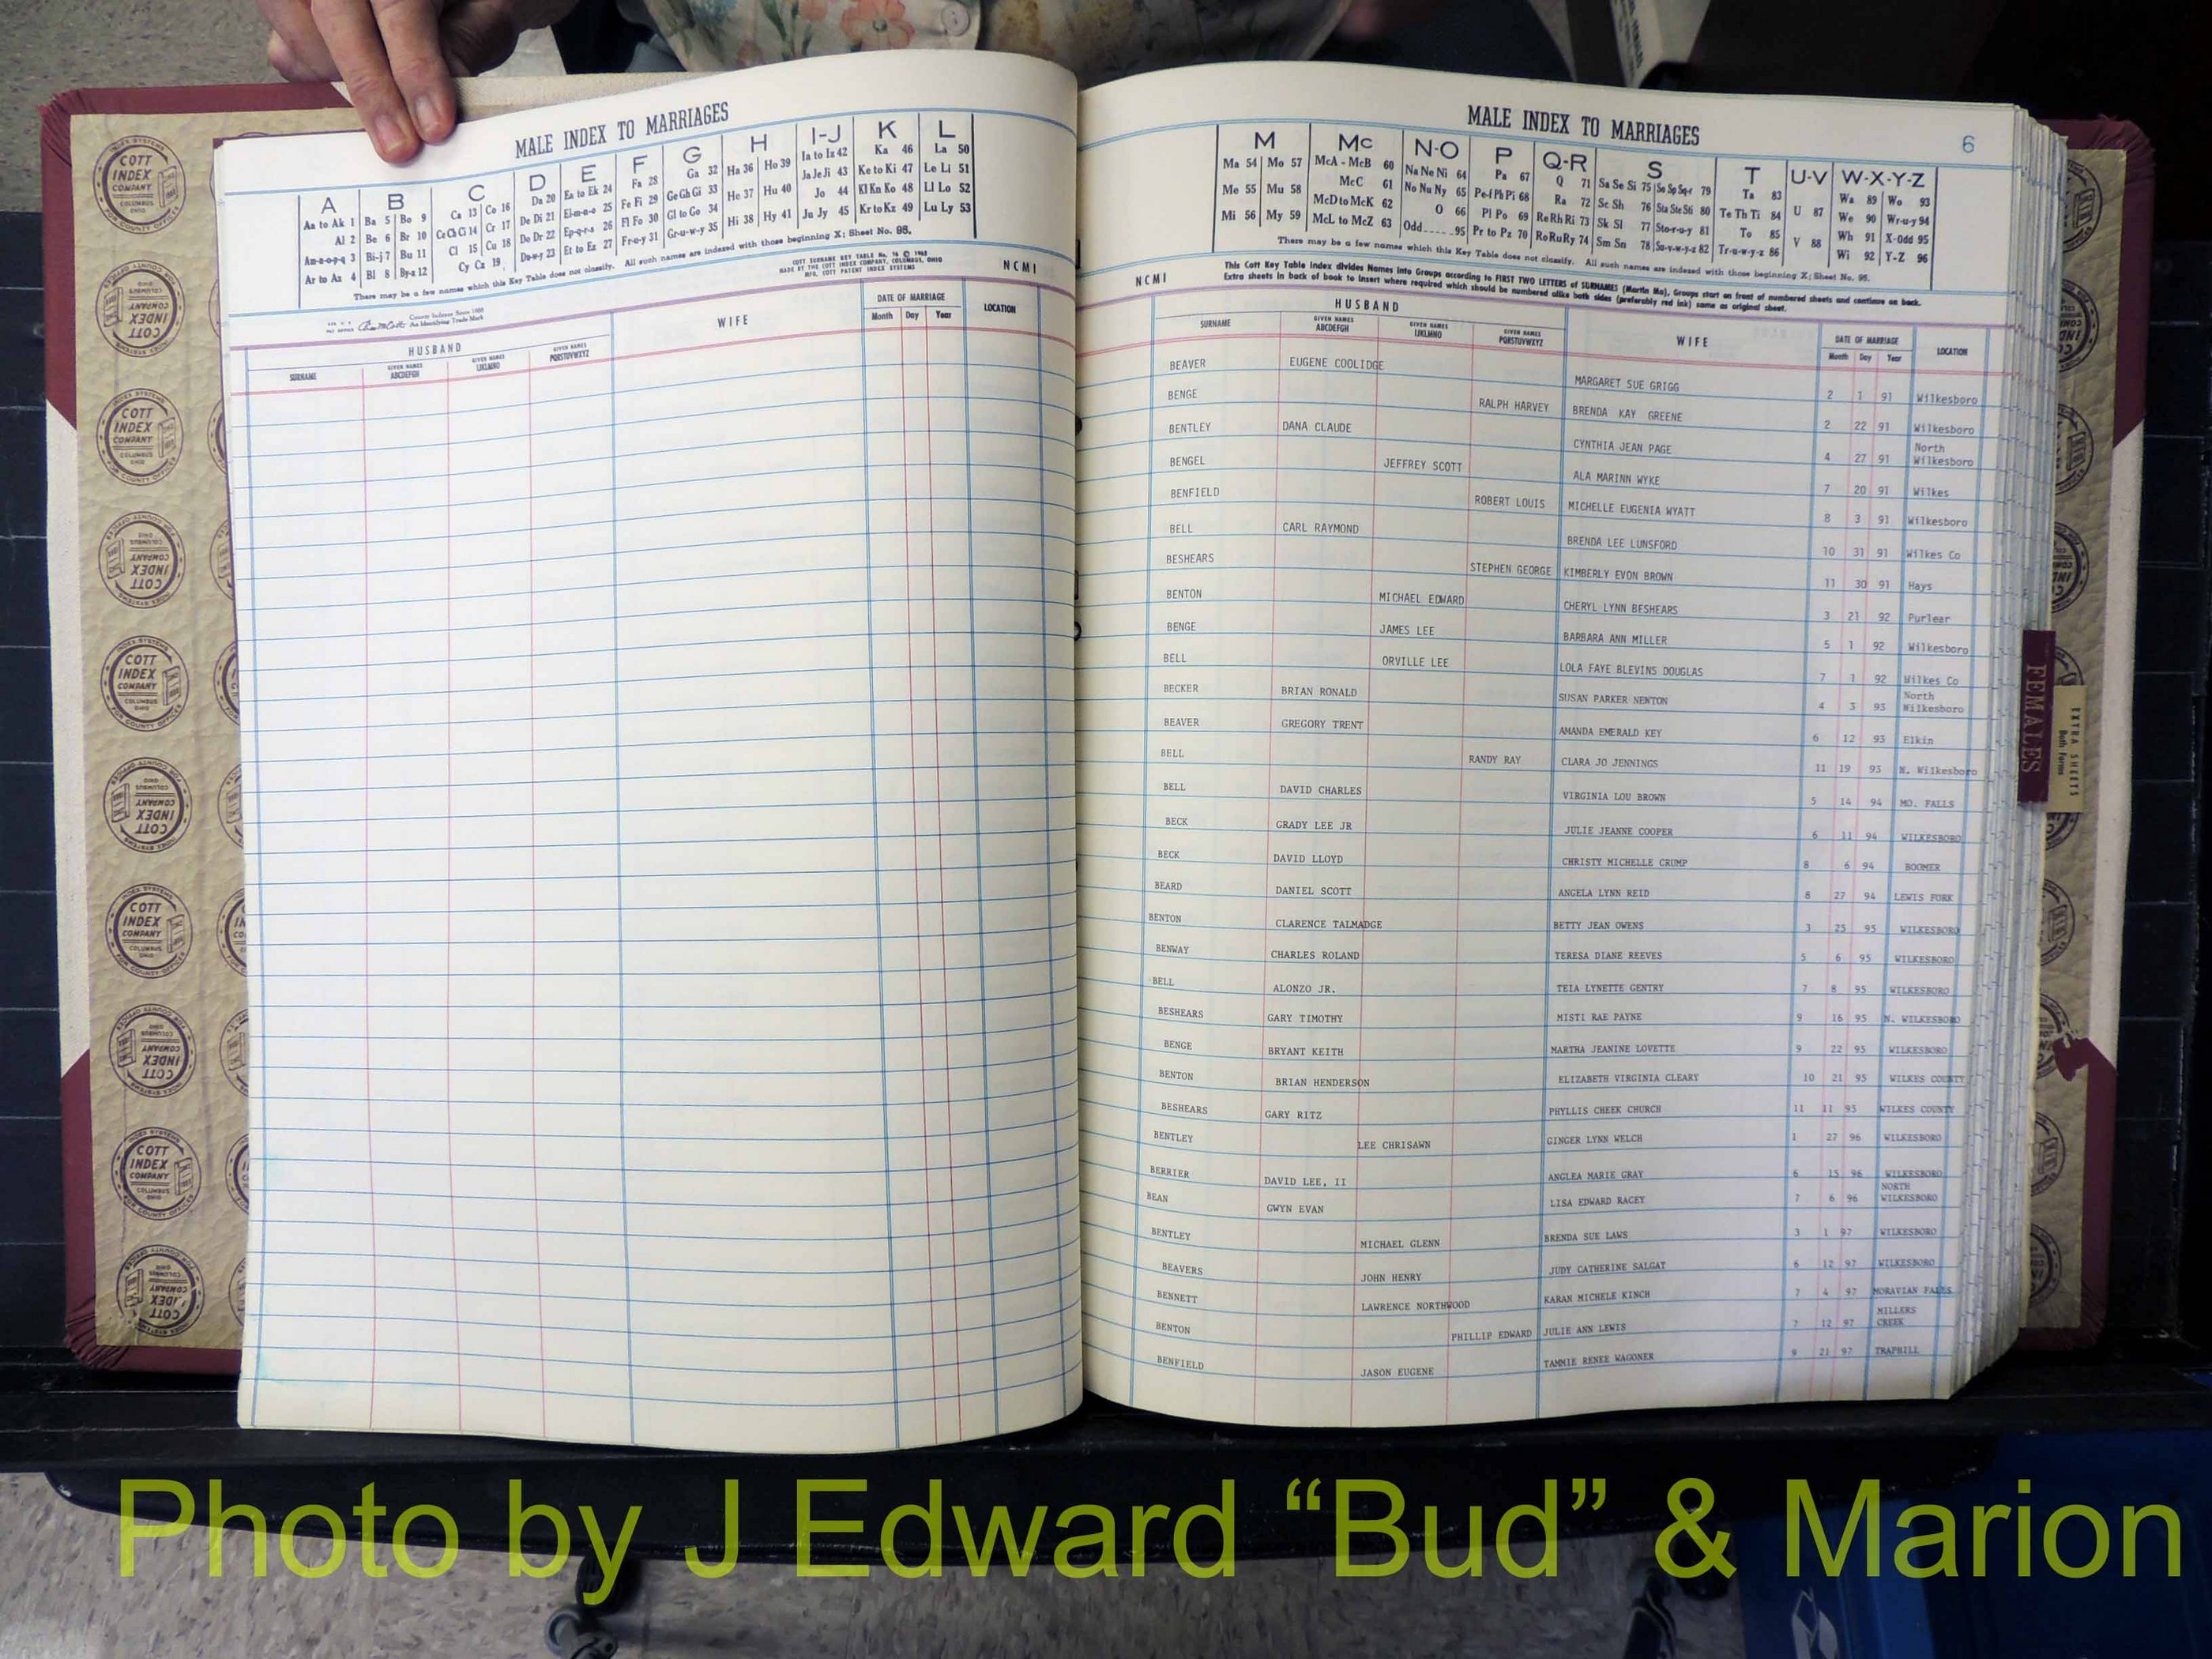 MALE INDEX TO MARRIAGES
A B C D E F G H I-J K L
Aa to Ak 1 Ba 5 Bo 9 Ca 13 Co 16 Da 20 Ea to Ek 24 Fa 28 Ga 32 Ha 36 Ho 39 Ia to Iz 42 Ka 46 La 50
Al 2 Be 6 Br 10 Ce Ch Ci 14 Cr 17 De Di 21 El-m-n-o 25 Fe Fi 29 Ge Gh Gi 33 He 37 Hu 40 Ja Je Ji 43 Ke to Ki 47 Le Li 51
Am-n-o-p-q 3 Bi-j 7 Bu 11 Cl 15 Cu 18 Do Dr 22 Ep-q-r-s 26 Fl Fo 30 Gl to Go 34 Hi 38 Hy 41 Jo 44 Kl Kn Ko 48 Ll Lo 52
Ar to Az 4 Bl 8 By-z 12 Cy Cz 19 Du-w-y 23 Et to Ez 27 Fr-u-y 31 Gr-u-w-y 35 Ju Jy 45 Kr to Kz 49 Lu Ly 53
There may be a few names which this Key Table does not classify. All such names are indexed with those beginning X; Sheet No. 95.
COTT SURNAME KEY TABLE No. 16 © 1965
MADE BY THE COTT INDEX COMPANY, COLUMBUS, OHIO
MFG. COTT PATENT INDEX SYSTEMS
NCMI
County Indexes Since 1888
An Identifying Trade Mark
HUSBAND WIFE DATE OF MARRIAGE LOCATION
SURNAME GIVEN NAMES ABCDEFGH GIVEN NAMES IJKLMNO GIVEN NAMES PQRSTUVWXYZ Month Day Year
MALE INDEX TO MARRIAGES 6
M Mc N-O P Q-R S T U-V W-X-Y-Z
Ma 54 Mo 57 McA - McB 60 Na Ne Ni 64 Pa 67 Q 71 Sa Se Si 75 So Sp Sq-r 79 Ta 83 Wa 89 Wo 93
Me 55 Mu 58 McC 61 No Nu Ny 65 Pe-f Ph Pi 68 Ra 72 Sc Sh 76 Sta Ste Sti 80 Te Th Ti 84 U 87 We 90 Wr-u-y 94
Mi 56 My 59 McD to McK 62 O 66 Pl Po 69 Re Rh Ri 73 Sk Sl 77 Sto-r-u-y 81 To 85 V 88 Wh 91 X-Odd 95
McL to McZ 63 Odd 95 Pr to Pz 70 Ro Ru Ry 74 Sm Sn 78 Su-v-w-y-z 82 Tr-u-w-y-z 86 Wi 92 Y-Z 96
There may be a few names which this Key Table does not classify. All such names are indexed with those beginning X; Sheet No. 95.
NCMI
This Cott Key Table Index divides Names into Groups according to FIRST TWO LETTERS of SURNAMES (Martin Ma), Groups start on front of numbered sheets and continue on back.
Extra sheets in back of book to insert where required which should be numbered alike both sides (preferably red ink) same as original sheet.
HUSBAND WIFE DATE OF MARRIAGE LOCATION
SURNAME GIVEN NAMES ABCDEFGH GIVEN NAMES IJKLMNO GIVEN NAMES PQRSTUVWXYZ Month Day Year
BEAVER EUGENE COOLIDGE MARGARET SUE GRIGG 2 1 91 Wilkesboro
BENGE RALPH HARVEY BRENDA KAY GREENE 2 22 91 Wilkesboro
BENTLEY DANA CLAUDE CYNTHIA JEAN PAGE 4 27 91 North Wilkesboro
BENGEL JEFFREY SCOTT ALA MARINN WYKE 7 20 91 Wilkes
BENFIELD ROBERT LOUIS MICHELLE EUGENIA WYATT 8 3 91 Wilkesboro
BELL CARL RAYMOND BRENDA LEE LUNSFORD 10 31 91 Wilkes Co
BESHEARS STEPHEN GEORGE KIMBERLY EVON BROWN 11 30 91 Hays
BENTON MICHAEL EDWARD CHERYL LYNN BESHEARS 3 21 92 Purlear
BENGE JAMES LEE BARBARA ANN MILLER 5 1 92 Wilkesboro
BELL ORVILLE LEE LOLA FAYE BLEVINS DOUGLAS 7 1 92 Wilkes Co
BECKER BRIAN RONALD SUSAN PARKER NEWTON 4 3 93 North Wilkesboro
BEAVER GREGORY TRENT AMANDA EMERALD KEY 6 12 93 Elkin
BELL RANDY RAY CLARA JO JENNINGS 11 19 93 N. Wilkesboro
BELL DAVID CHARLES VIRGINIA LOU BROWN 5 14 94 MO. FALLS
BECK GRADY LEE JR JULIE JEANNE COOPER 6 11 94 WILKESBORO
BECK DAVID LLOYD CHRISTY MICHELLE CRUMP 8 6 94 BOOMER
BEARD DANIEL SCOTT ANGELA LYNN REID 8 27 94 LEWIS FORK
BENTON CLARENCE TALMADGE BETTY JEAN OWENS 3 25 95 WILKESBORO
BENWAY CHARLES ROLAND TERESA DIANE REEVES 5 6 95 WILKESBORO
BELL ALONZO JR. TEIA LYNETTE GENTRY 7 8 95 WILKESBORO
BESHEARS GARY TIMOTHY MISTI RAE PAYNE 9 16 95 N. WILKESBORO
BENGE BRYANT KEITH MARTHA JEANINE LOVETTE 9 22 95 WILKESBORO
BENTON BRIAN HENDERSON ELIZABETH VIRGINIA CLEARY 10 21 95 WILKES COUNTY
BESHEARS GARY RITZ PHYLLIS CHEEK CHURCH 11 11 95 WILKES COUNTY
BENTLEY LEE CHRISAWN GINGER LYNN WELCH 1 27 96 WILKESBORO
BERRIER DAVID LEE, II ANGLEA MARIE GRAY 6 15 96 WILKESBORO
BEAN GWYN EVAN LISA EDWARD RACEY 7 6 96 NORTH WILKESBORO
BENTLEY MICHAEL GLENN BRENDA SUE LAWS 3 1 97 WILKESBORO
BEAVERS JOHN HENRY JUDY CATHERINE SALGAT 6 12 97 WILKESBORO
BENNETT LAWRENCE NORTHWOOD KARAN MICHELE KINCH 7 4 97 MORAVIAN FALLS
BENTON PHILLIP EDWARD JULIE ANN LEWIS 7 12 97 MILLERS CREEK
BENFIELD JASON EUGENE TAMMIE RENEE WAGONER 9 21 97 TRAPHILL
FEMALES
EXTRA SHEETS
Both Forms
COTT INDEX COMPANY COLUMBUS OHIO
INDEX SYSTEMS FOR COUNTY OFFICES
Photo by J Edward “Bud” & Marion